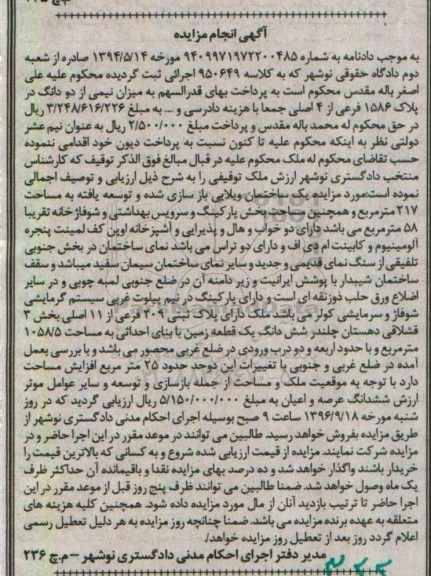 آگهی انجام مزایده
به موجب دادنامه به شماره ۹۴۰۹۹۷۱۹۷۲۲۰۰۴۸۵ مورخه ۱۳۹۴/۵/۱۴ صادره از شعبه
دوم دادگاه حقوقی نوشهر که به کلاسه ۹۵۰۶۴۹ اجرائی ثبت گردیده محکوم علیه علی
اصغر باله مقدس محکوم است به پرداخت بهای قدرالسهم به میزان نیمی از دو دانگ در
پلاک ۱۵۸۶ فرعی از ۴ اصلی جمعا با هزینه دادرسی و ... به مبلغ ۳/۲۴۸/۶۱۶/۲۲۶ ریال
در حق محکوم له محمد باله مقدس و پرداخت مبلغ ۲/۵۰۰/۰۰۰ ریال به عنوان نیم عشر
دولتی نظر به اینکه محکوم علیه تا کنون نسبت به پرداخت دیون خود اقدامی ننموده
حسب تقاضای محکوم له ملک محکوم علیه در قبال مبالغ فوق الذکر توقیف که کارشناس
منتخب دادگستری نوشهر ارزش ملک توقیفی را به شرح ذیل ارزیابی و توصیف اجمالی
نموده است:مورد مزایده یک ساختمان ویلایی باز سازی شده و توسعه یافته به مساحت
۲۱۷ مترمربع و همچنین مساحت بخش پارکینگ و سرویس بهداشتی و شوفاژ خانه تقریبا
۵۸ مترمربع می باشد دارای دو خواب و هال و پذیرایی و آشپزخانه اوپن کف لمینت پنجره
آلومینیوم و کابینت ام دی اف و دارای دو تراس می باشد نمای ساختمان در بخش جنوبی
تلفیقی از سنگ نمای قدیمی و جدید و سایر نمای ساختمان سیمان سفید میباشد و سقف
ساختمان شیبدار با پوشش ایرانیت و زیر دامنه آن در ضلع جنوبی لمبه چوبی و در سایر
اضلاع ورق حلب ذوزنقه ای است و دارای پارکینگ در نیم پیلوت غربی سیستم گرمایشی
شوفاژ و سرمایشی کولر می باشد ملک دارای پلاک ثبتی ۲۰۹ فرعی از ۱۱ اصلی بخش ۳
قشلاقی دهستان چلندر شش دانگ یک قطعه زمین با بنای احداثی به مساحت ۱۰۵۸/۵
مترمربع و با حدود اربعه و دو درب ورودی در ضلع غربی محصور می باشد و با بررسی بعمل
آمده در ضلع غربی و جنوبی با تغییرات این دوحد حدود ۲۵ متر مربع افزایش مساحت
دارد با توجه به موقعیت ملک و مساحت از جمله بازسازی و توسعه و سایر عوامل موثر
ارزش ششدانگ عرصه و اعیان به مبلغ ۵/۱۵۰/۰۰۰/۰۰۰ ریال ارزیابی گردید که در روز
شنبه مورخه ۱۳۹۶/۹/۱۸ ساعت ۹ صبح بوسیله اجرای احکام مدنی دادگستری نوشهر از
طریق مزایده بفروش خواهد رسید. طالبین می توانند در موعد مقرر در این اجرا حاضر و در
مزایده شرکت نمایند. مزایده از قیمت ارزیابی شده شروع و به کسانی که بالاترین قیمت را
خریدار باشند واگذار خواهد شد و ده درصد بهای مزایده نقدا و باقیمانده آن حداکثر ظرف
یک ماه وصول خواهد شد. ضمنا طالبین می توانند ظرف پنج روز قبل از موعد مقرر در این
اجرا حاضر تا ترتیب بازدید آنان از مال مورد مزایده داده شود. همچنین کلیه هزینه های
متعلقه به عهده برنده مزایده می باشد. ضمنا چنانچه روز مزایده به هر دلیل تعطیل رسمی
اعلام گردد روز بعد از تعطیل روز مزایده خواهد/.
مدیر دفتر اجرای احکام مدنی دادگستری نوشهر -م.چ ۲۳۶